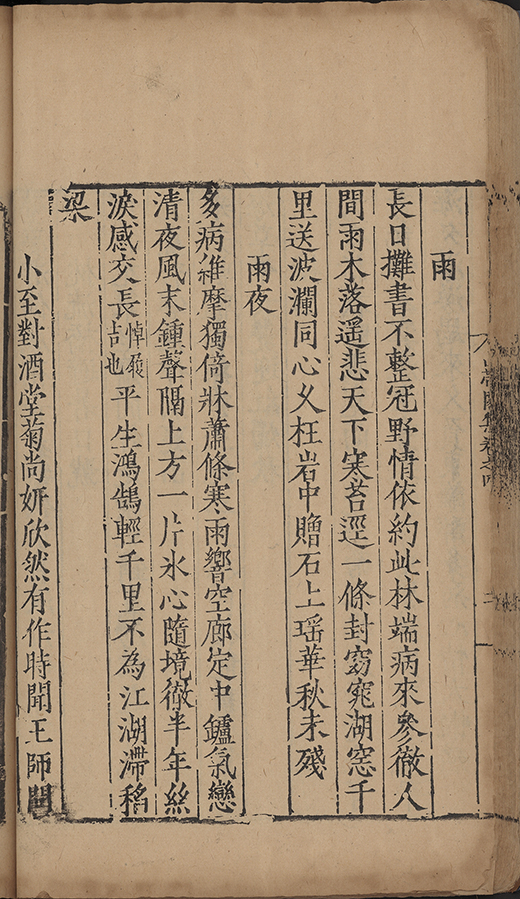 集卷之四
二
雨
長日攤書不整冠野情依約此林端病來參徹人
間雨木落遥悲天下寒苔逕一條封窈窕湖窓千
里送波瀾同心久枉岩中贈石上瑶華秋未殘
雨夜
多病維摩獨倚牀蕭條寒雨響空廊定中鑪氣戀
清夜風末鍾聲隔上方一片氷心隨境徹半年絲
淚感交長悼吉也平生鴻鵠輕千里不為江湖滯稻
梁
小至對酒堂菊尚妍欣然有作時聞王師